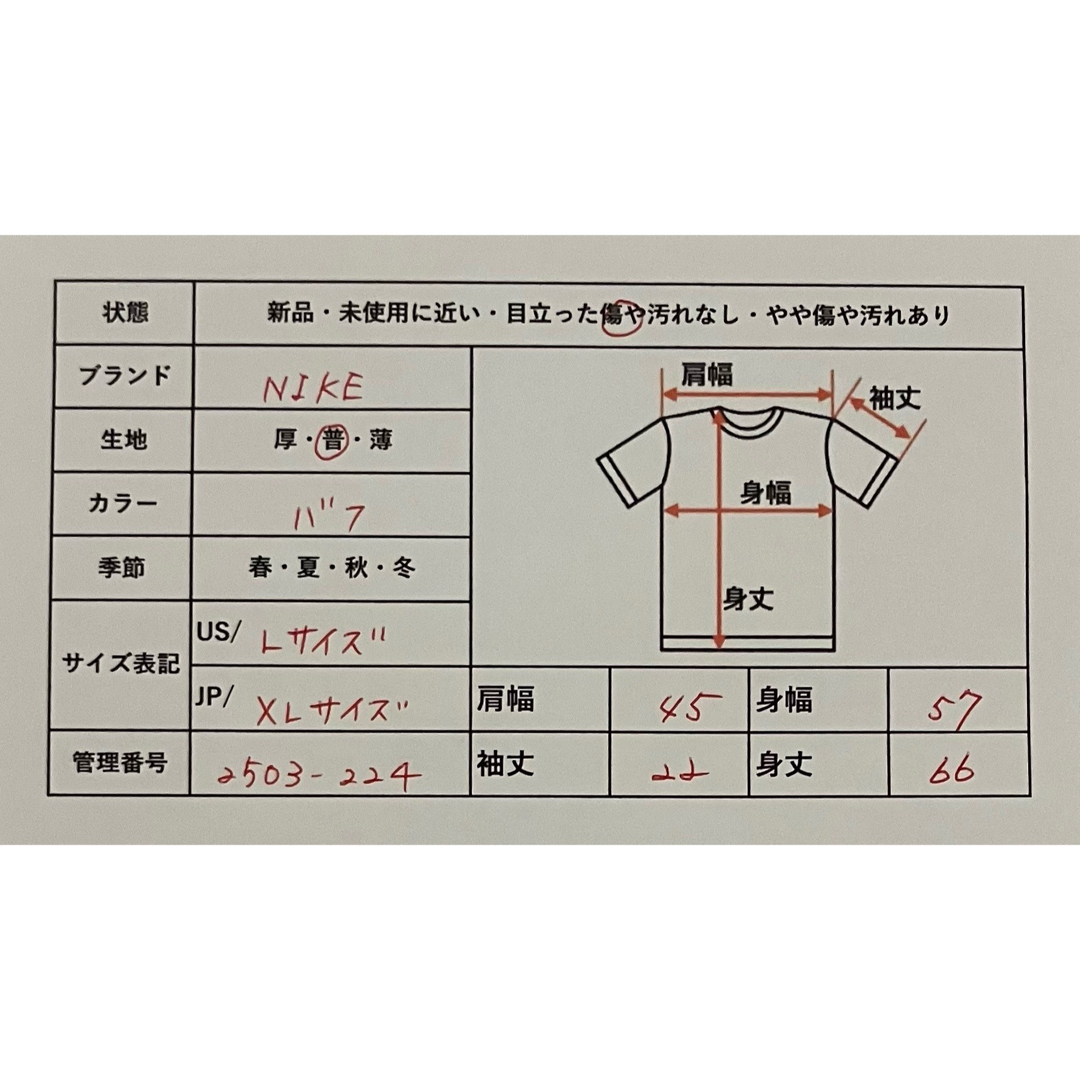 状態 新品・未使用に近い・目立った傷や汚れなし・やや傷や汚れあり
ブランド NIKE
生地 厚・普・薄
カラー バフ
季節 春・夏・秋・冬
サイズ表記
US/ Lサイズ
JP/ XLサイズ
管理番号 2503-224
肩幅
袖丈
身幅
身丈
肩幅 45 身幅 57
袖丈 22 身丈 66